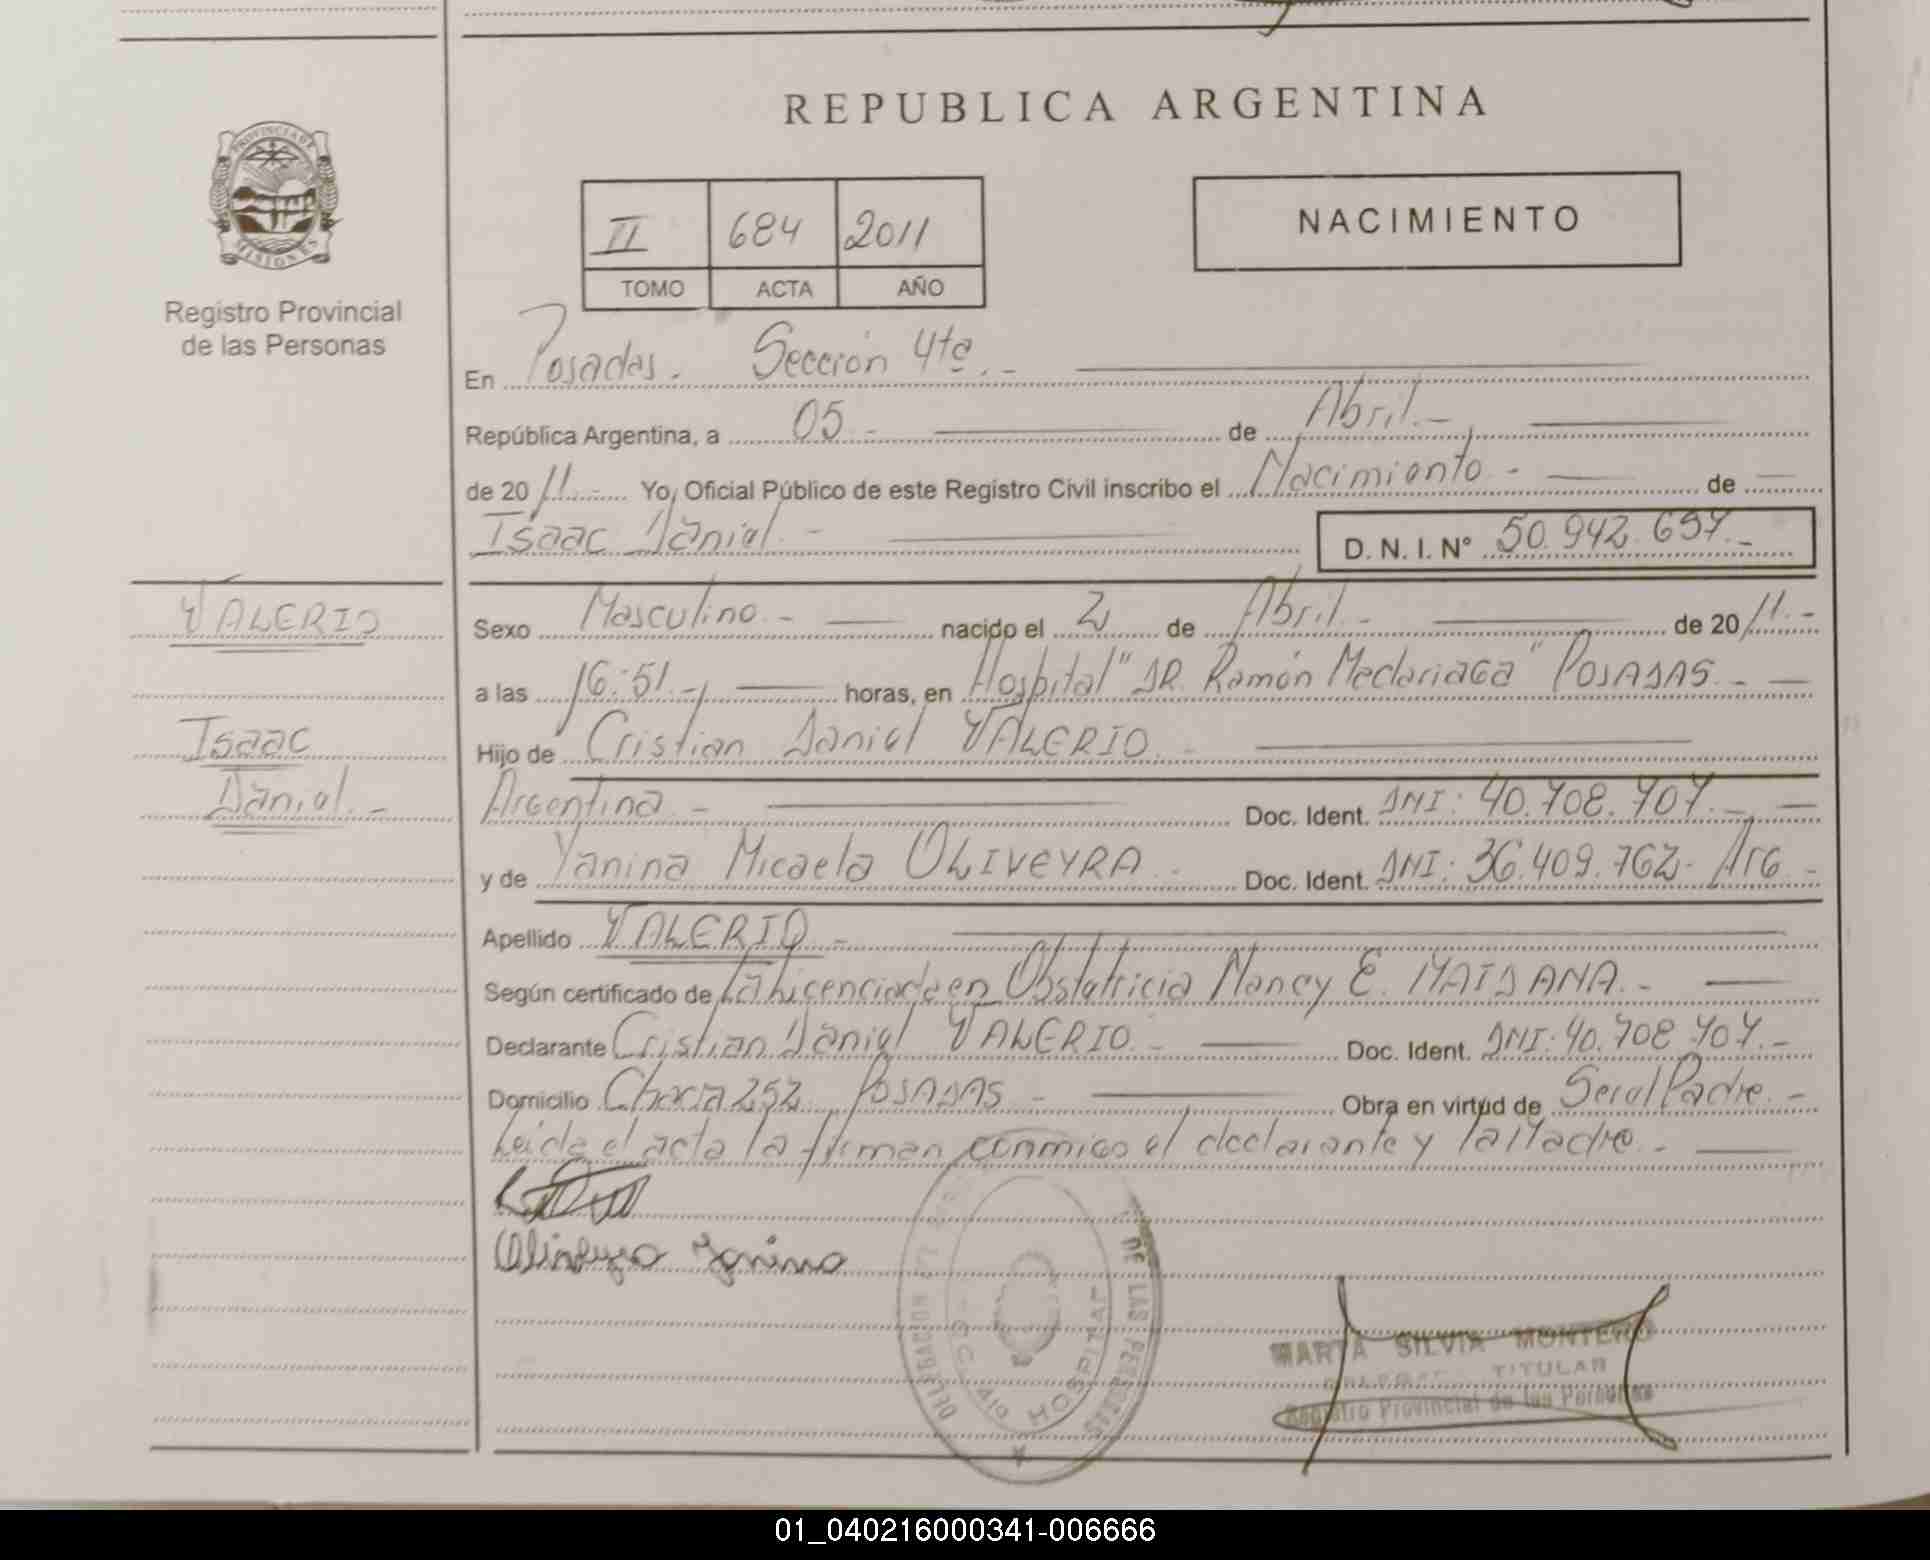 REPUBLICA ARGENTINA
PROVINCIA DE
MISIONES
Registro Provincial
de las Personas
II 684 2011
TOMO ACTA AÑO
NACIMIENTO
En Posadas. Sección 4ta.-
República Argentina, a 05.- de Abril.-
de 2011.- Yo, Oficial Público de este Registro Civil inscribo el Nacimiento.- de
Isaac Daniel.-
D. N. I. Nº 50.942.697.-
VALERIO
Isaac
Daniel.-
Sexo Masculino.- nacido el 2 de Abril.- de 2011.-
a las 16:51.- horas, en Hospital "DR. Ramón Madariaga" POSADAS.-
Hijo de Cristian Daniel VALERIO.-
Argentina.- Doc. Ident. DNI: 40.708.707.-
y de Yanina Micaela OLIVEYRA.- Doc. Ident. DNI: 36.409.762- Arg.-
Apellido VALERIO.-
Según certificado de La Licenciada en Obstetricia Nancy E. MAIDANA.-
Declarante Cristian Daniel VALERIO.- Doc. Ident. DNI: 40.708.707.-
Domicilio Chacra 252 POSADAS.- Obra en virtud de Ser el Padre.-
Leida el acta la firman conmigo el declarante y la Madre.-
Oliveyra Yanina
DELEGACION
DE LAS PERSONAS
HOSPITAL
MARTA SILVIA MONTERO
TITULAR
Registro Provincial de las Personas
01_040216000341-006666